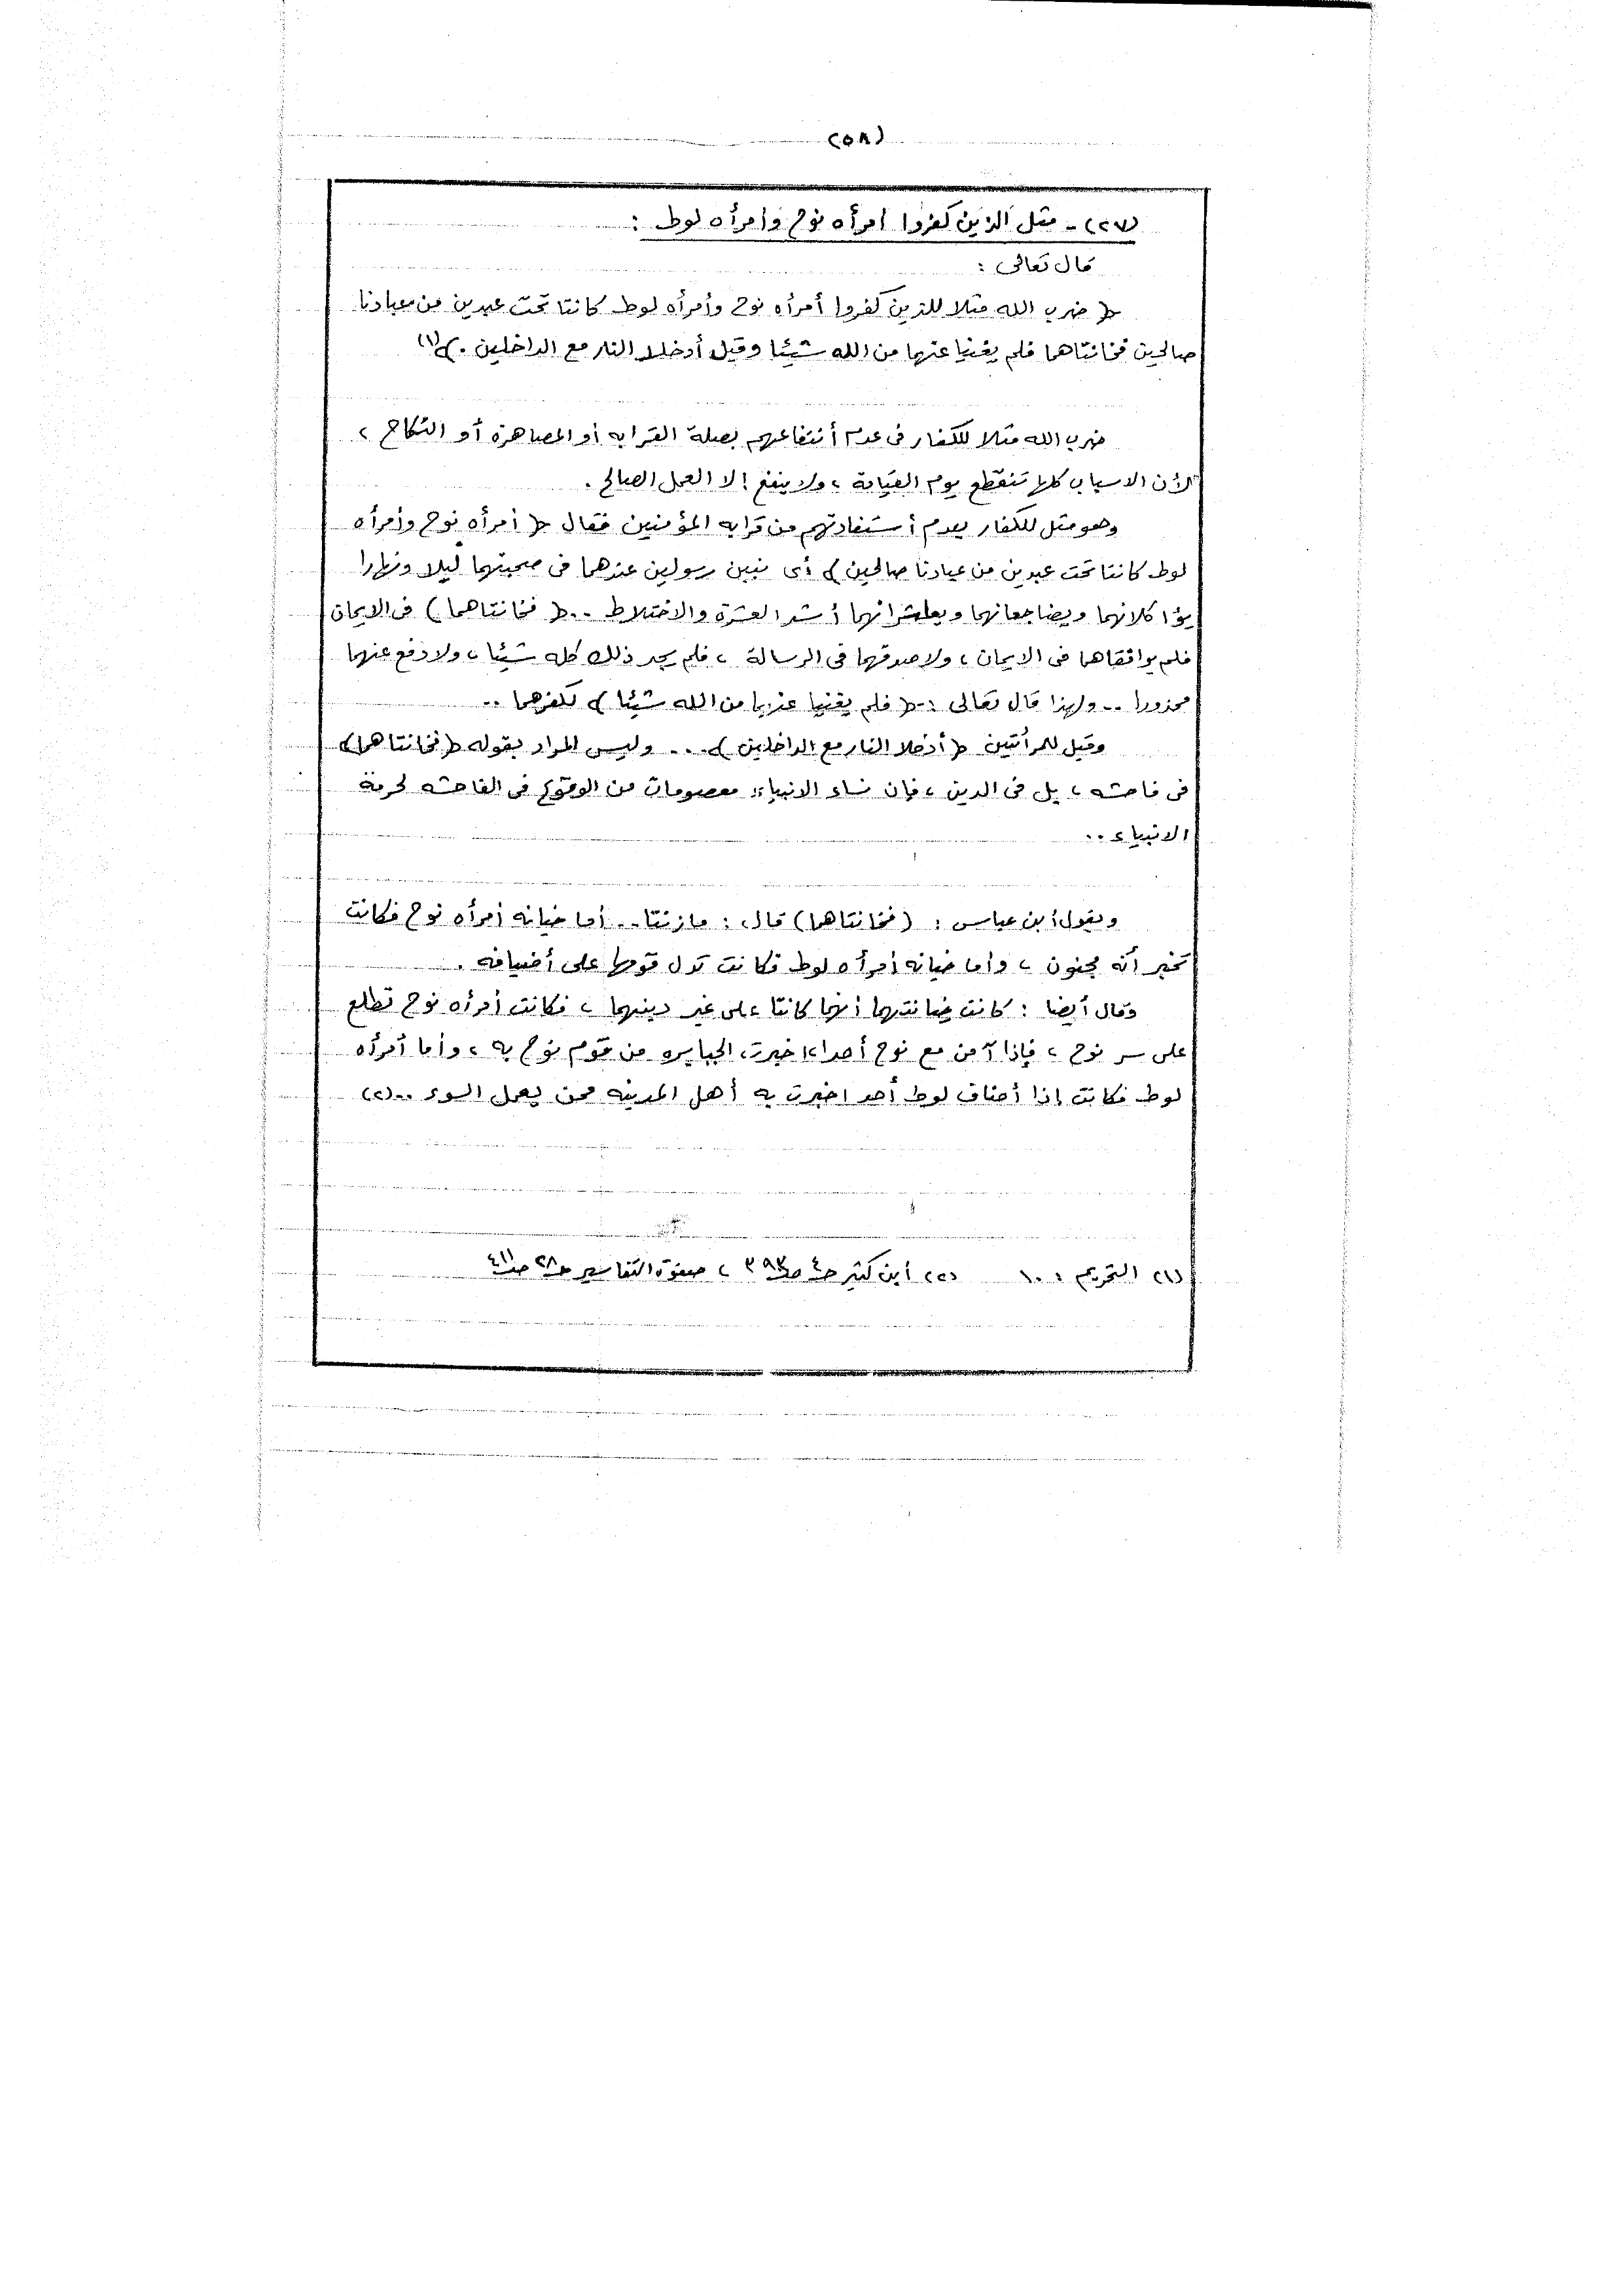 (٥٨)
(٢٧) - مثل الذين كفروا امرأه نوح وامرأه لوط :
قال تعالى :
﴿ ضرب الله مثلا للذين كفروا أمرأه نوح وأمرأه لوط كانتا تحت عبدين من عبادنا
صالحين فخانتاهما فلم يغنيا عنهما من الله شيئا وقيل أدخلا النار مع الداخلين . ﴾(١)
ضرب الله مثلا للكفار فى عدم أنتفاعهم بصلة القرابه أو المصاهرة أو النكاح ،
لأن الاسباب كلها تنقطع يوم القيامة ، ولا ينفع إلا العمل الصالح .
وهو مثل للكفار بعدم أستفادتهم من قرابه المؤمنين فقال ﴿ أمرأه نوح وأمرأه
لوط كانتا تحت عبدين من عبادنا صالحين ﴾ أى نبيين رسولين عندهما فى صحبتهما ليلا ونهارا
يؤاكلانهما ويضاجعانهما ويعاشرانهما أشد العشرة والاختلاط .. ﴿ فخانتاهما ﴾ فى الايمان
فلم يوافقاهما فى الايمان ، ولا صدقهما فى الرسالة ، فلم يجد ذلك كله شيئا ، ولا دفع عنهما
محذورا .. ولهذا قال تعالى :- ﴿ فلم يغنيا عنهما من الله شيئا ﴾ لكفرهما ..
وقيل للمرأتين ﴿ أدخلا النار مع الداخلين ﴾ ... وليس المراد بقوله ﴿ فخانتاهما ﴾
فى فاحشه ، بل فى الدين ، فإن نساء الانبياء معصومات من الوقوع فى الفاحشه لحرمة
الانبياء ..
ويقول أبن عباس : (فخانتاهما) قال : مازنتا .. أما خيانه أمرأه نوح فكانت
تخبر أنه مجنون ، وأما خيانه أمرأه لوط فكانت تدل قومها على أضيافه .
وقال أيضا : كانت خيانتهما أنهما كانتا على غير دينهما ، فكانت أمرأه نوح تطلع
على سر نوح ، فإذا آمن مع نوح أحدا اخبرت الجبابره من قوم نوح به ، وأما أمرأه
لوط فكانت إذا أضاف لوط أحد اخبرت به أهل المدينه ممن يعمل السوء .. (٢)
(١) التحريم : ١٠ (٢) أبن كثير حـ٤ صـ٣٩٣ ، صفوة التفاسير حـ٢٨ صـ٤١١